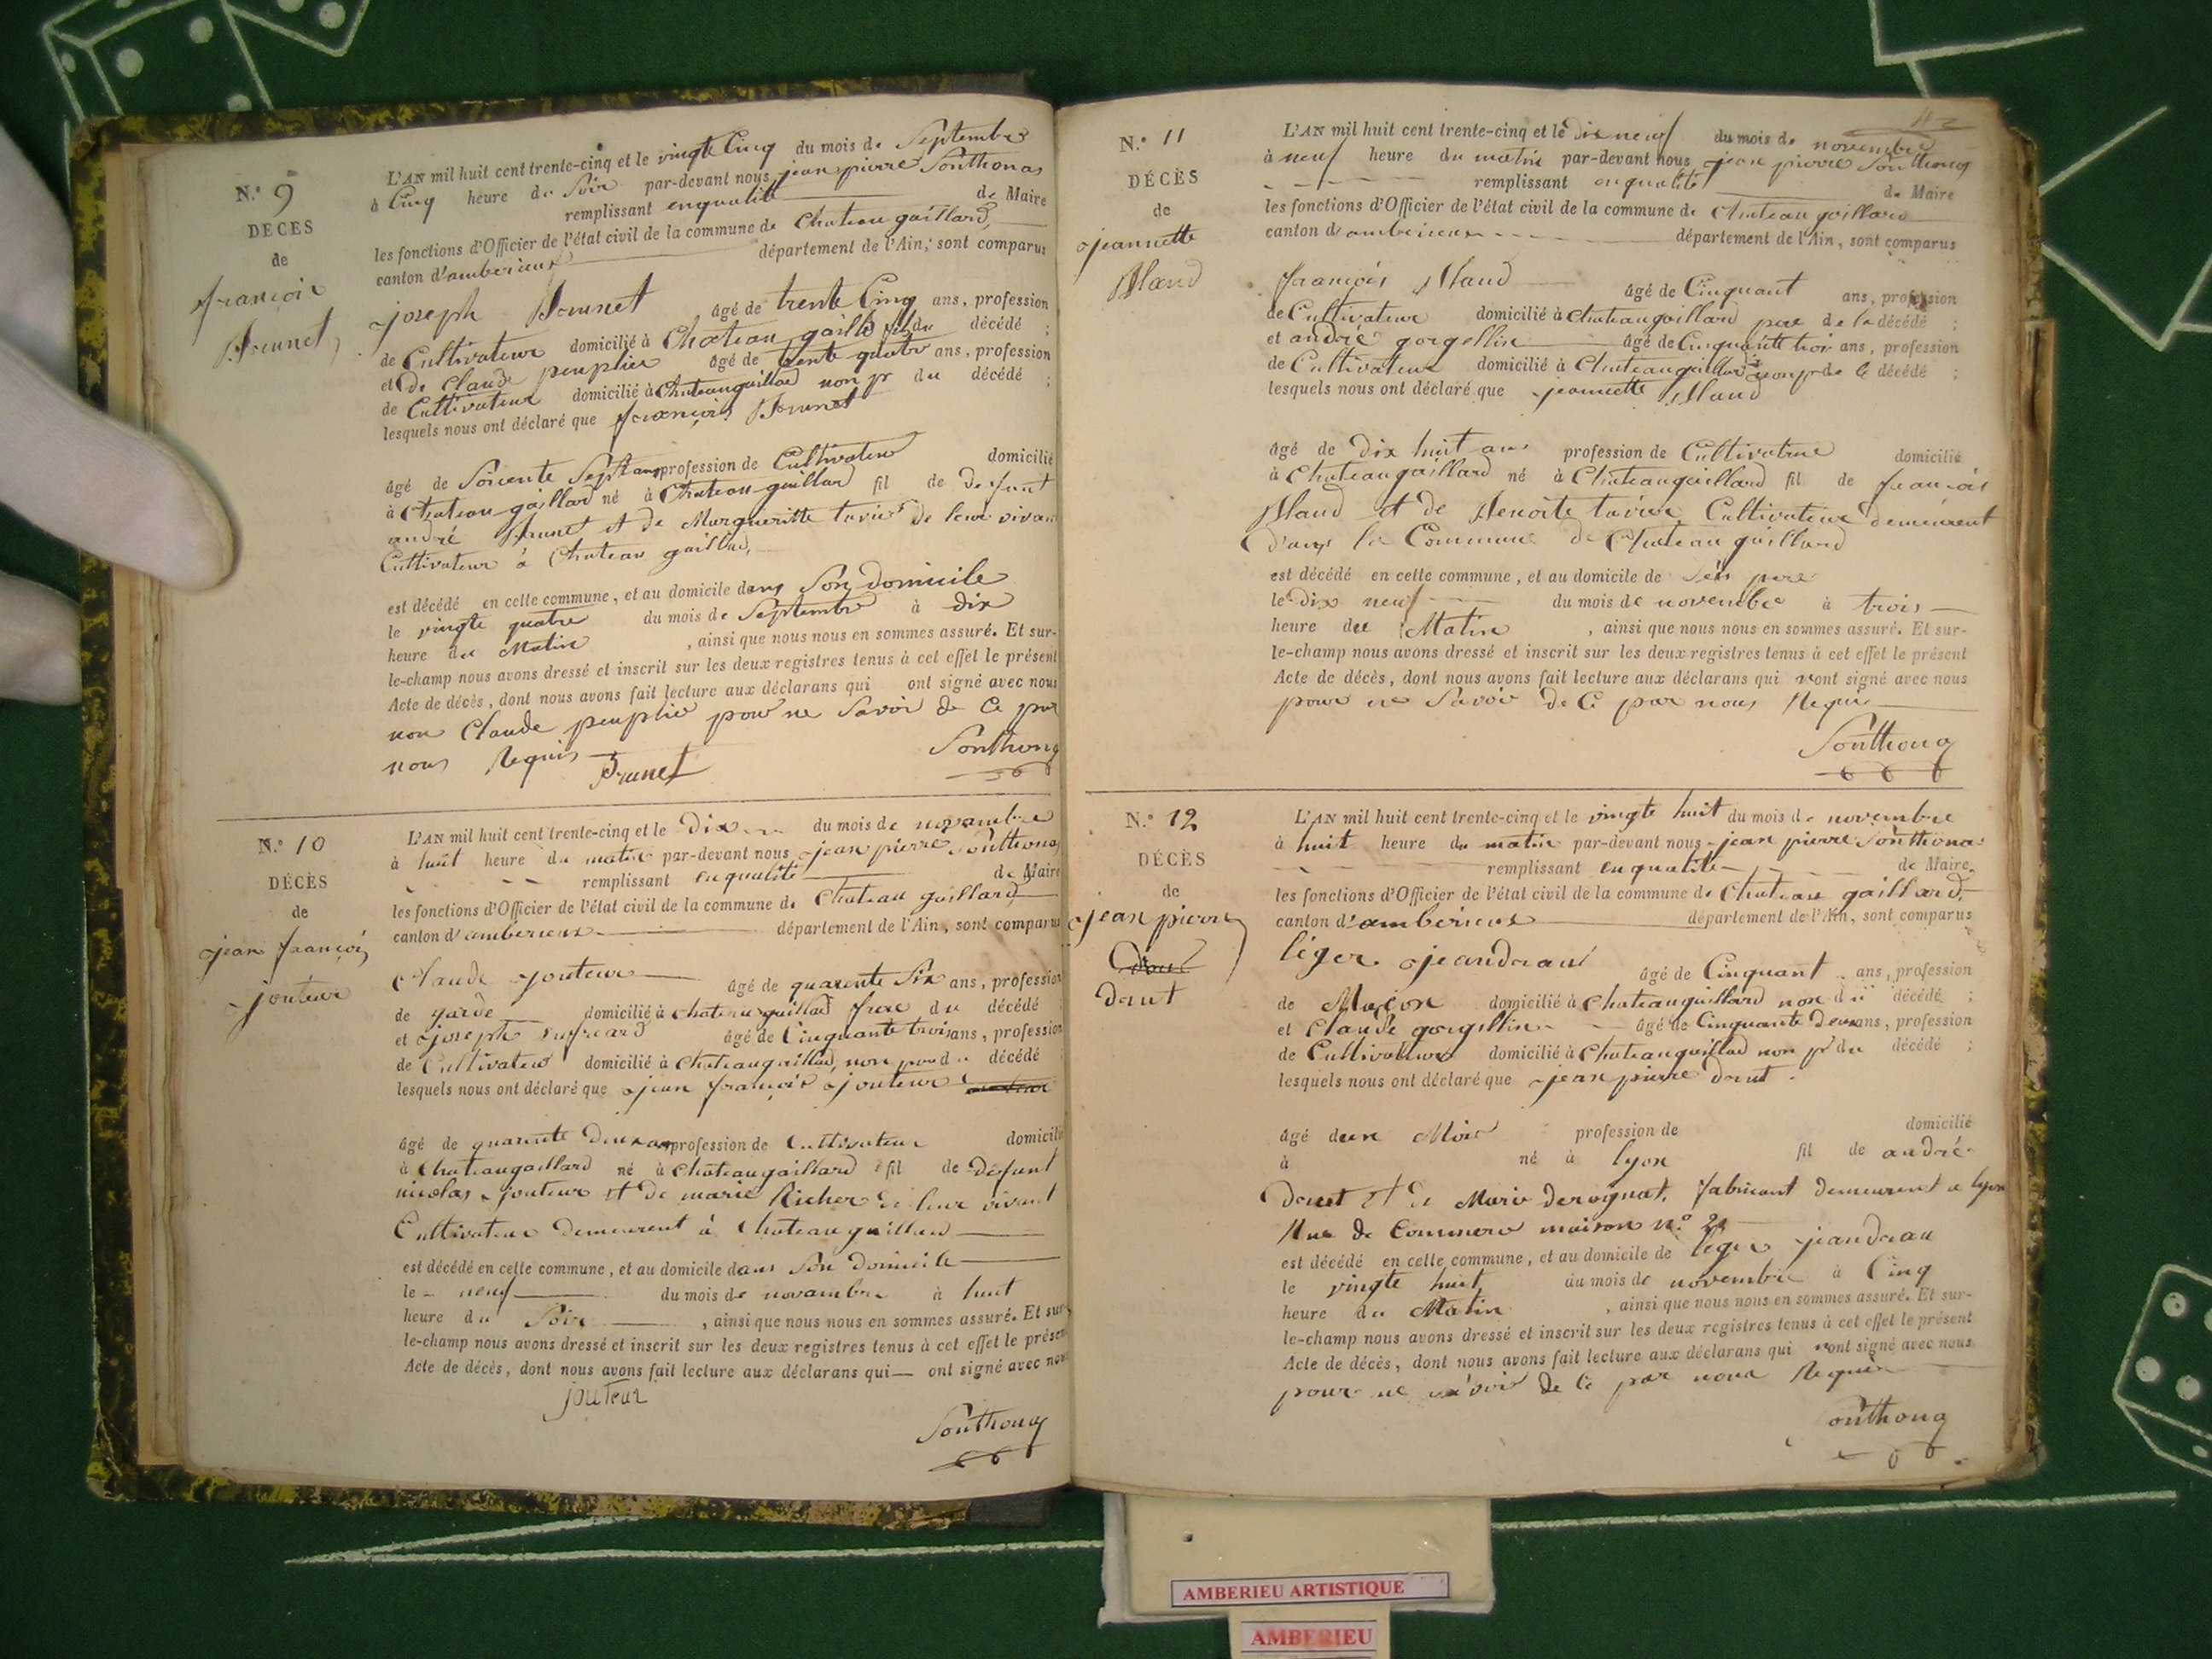 N.º 9
DÉCÈS
de
françois
Brunet
L'AN mil huit cent trente-cinq et le vingte Cinq du mois de Septembre
à Cinq heure du Soir par-devant nous jean pierre Sonthonas
remplissant en qualité de Maire
les fonctions d'Officier de l'état civil de la commune de Chateau gaillard,
canton d'amberieux département de l'Ain, sont comparus
joseph Brunet âgé de trente Cinq ans, profession
de Cultivateur domicilié à Chateau gailld fils du décédé ;
et De Claude peuplie âgé de trente quatre ans, profession
de Cultivateur domicilié à Chateaugaillard non pr du décédé ;
lesquels nous ont déclaré que françois Brunet
âgé de Soicente Sept ans profession de Cultivateur domicilié
à Chateau gaillard né à Chateau gaillard fil de defunt
andré Brunet et de Margueritte tavier de leur vivan
Cultivateur à Chateau gaillard,
est décédé en cette commune, et au domicile dans Son Domicile
le vingte quatre du mois de Septembre à dix
heure du Matin , ainsi que nous nous en sommes assuré. Et sur-
le-champ nous avons dressé et inscrit sur les deux registres tenus à cet effet le présent
Acte de décès, dont nous avons fait lecture aux déclarans qui ont signé avec nous
non Claude peuplie pour ne Savoir de Ce par
nous Requis
Brunet Sonthona
N.º 10
DÉCÈS
de
jean françois
jouteur
L'AN mil huit cent trente-cinq et le Dix du mois de novambre
à huit heure du matin par-devant nous jean pierre Sonthonas
remplissant en qualité de Maire
les fonctions d'Officier de l'état civil de la commune de Chateau gaillard
canton d'amberieux département de l'Ain, sont comparus
Claude jouteur âgé de quarente Six ans, profession
de garde domicilié à chateaugaillard frere du décédé ;
et joseph âgé de Cinquante trois ans, profession
de Cultivateur domicilié à Chateaugaillad, non pr du décédé ;
lesquels nous ont déclaré que jean françois jouteur
âgé de quarente Deux ans profession de Cultivateur domicilié
à Chateaugaillard né à chateaugaillard fil de Défunt
nicolas jouteur et de marie Richer de leur vivant
Cultivateur Demeurent à Chateau gaillard
est décédé en cette commune, et au domicile dans Son Domicile
le neuf du mois de novambre à huit
heure du Soir , ainsi que nous nous en sommes assuré. Et sur-
le-champ nous avons dressé et inscrit sur les deux registres tenus à cet effet le présent
Acte de décès, dont nous avons fait lecture aux déclarans qui ont signé avec nous
jouteur
Sonthona
42
N.º 11
DÉCÈS
de
jeannette
Bland
L'AN mil huit cent trente-cinq et le Dix neuf du mois de novembre
à neuf heure du matin par-devant nous jean pierre Sonthonas
remplissant en qualité de Maire
les fonctions d'Officier de l'état civil de la commune de Chateau gaillard
canton d'amberieux département de l'Ain, sont comparus
françois Bland âgé de Cinquant ans, profession
de Cultivateur domicilié à Chateaugaillard pere de la décédé ;
et andré gorgellin âgé de Cinquante trois ans, profession
de Cultivateur domicilié à Chateaugaillard non pr de le décédé ;
lesquels nous ont déclaré que jeannette Bland
âgé de Dix huit ans profession de Cultivatrue domicilié
à Chateaugaillard né à Chateaugaillard fil de françois
Bland et de Benoite tavier Cultivateur demeurent
Dans la Commune de Chateau gaillard
est décédé en cette commune, et au domicile de Sen pere
le dix neuf du mois de novembre à trois
heure du Matin , ainsi que nous nous en sommes assuré. Et sur-
le-champ nous avons dressé et inscrit sur les deux registres tenus à cet effet le présent
Acte de décès, dont nous avons fait lecture aux déclarans qui nont signé avec nous
pour ne Savoir de Ce par nous Requis
Sonthona
N.º 12
DÉCÈS
de
jean pierre
Drut
L'AN mil huit cent trente-cinq et le vingte huit du mois de novembre
à huit heure du matin par-devant nous jean pierre Sonthonas
remplissant en qualité de Maire
les fonctions d'Officier de l'état civil de la commune de Chateau gaillard,
canton d'amberieux département de l'Ain, sont comparus
léger jeandrau âgé de Cinquant ans, profession
de Maçon domicilié à Chateaugaillard non du décédé ;
et Claude gorgellin âgé de Cinquante Deux ans, profession
de Cultivateur domicilié à Chateaugaillad non pr du décédé ;
lesquels nous ont déclaré que jean pierre Drut
âgé dun Mois profession de domicilié
à né à lyon fil de andré
Drut et de Marie derognat, fabricant demeurent a lyon
Rue de Commerce maison n.º
est décédé en cette commune, et au domicile de leger jeandrau
le vingte huit du mois de novembre à Cinq
heure du Matin , ainsi que nous nous en sommes assuré. Et sur-
le-champ nous avons dressé et inscrit sur les deux registres tenus à cet effet le présent
Acte de décès, dont nous avons fait lecture aux déclarans qui nont signé avec nous
pour ne savoir de Ce par nous Requis
Sonthona
AMBERIEU ARTISTIQUE
AMBERIEU